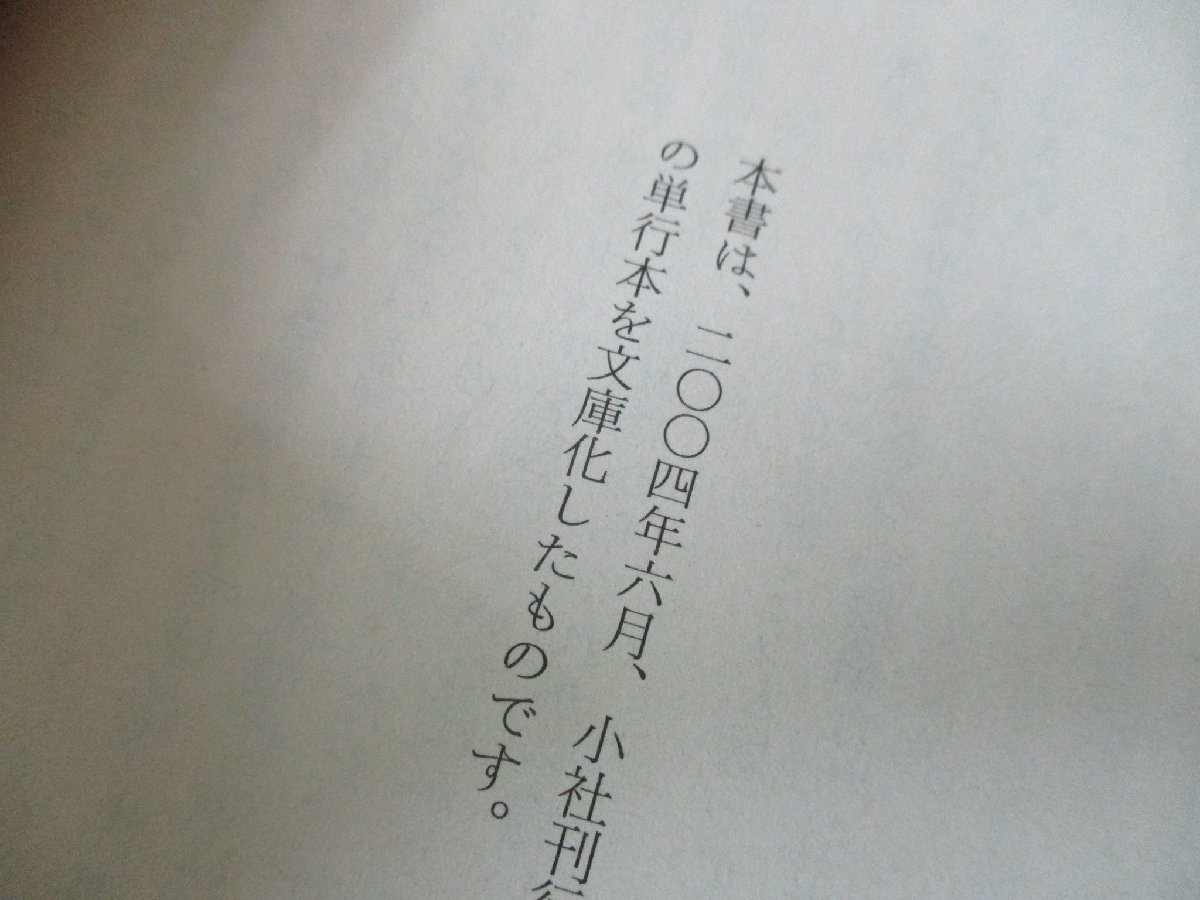 本書は、二〇〇四年六月、小社刊行
の単行本を文庫化したものです。